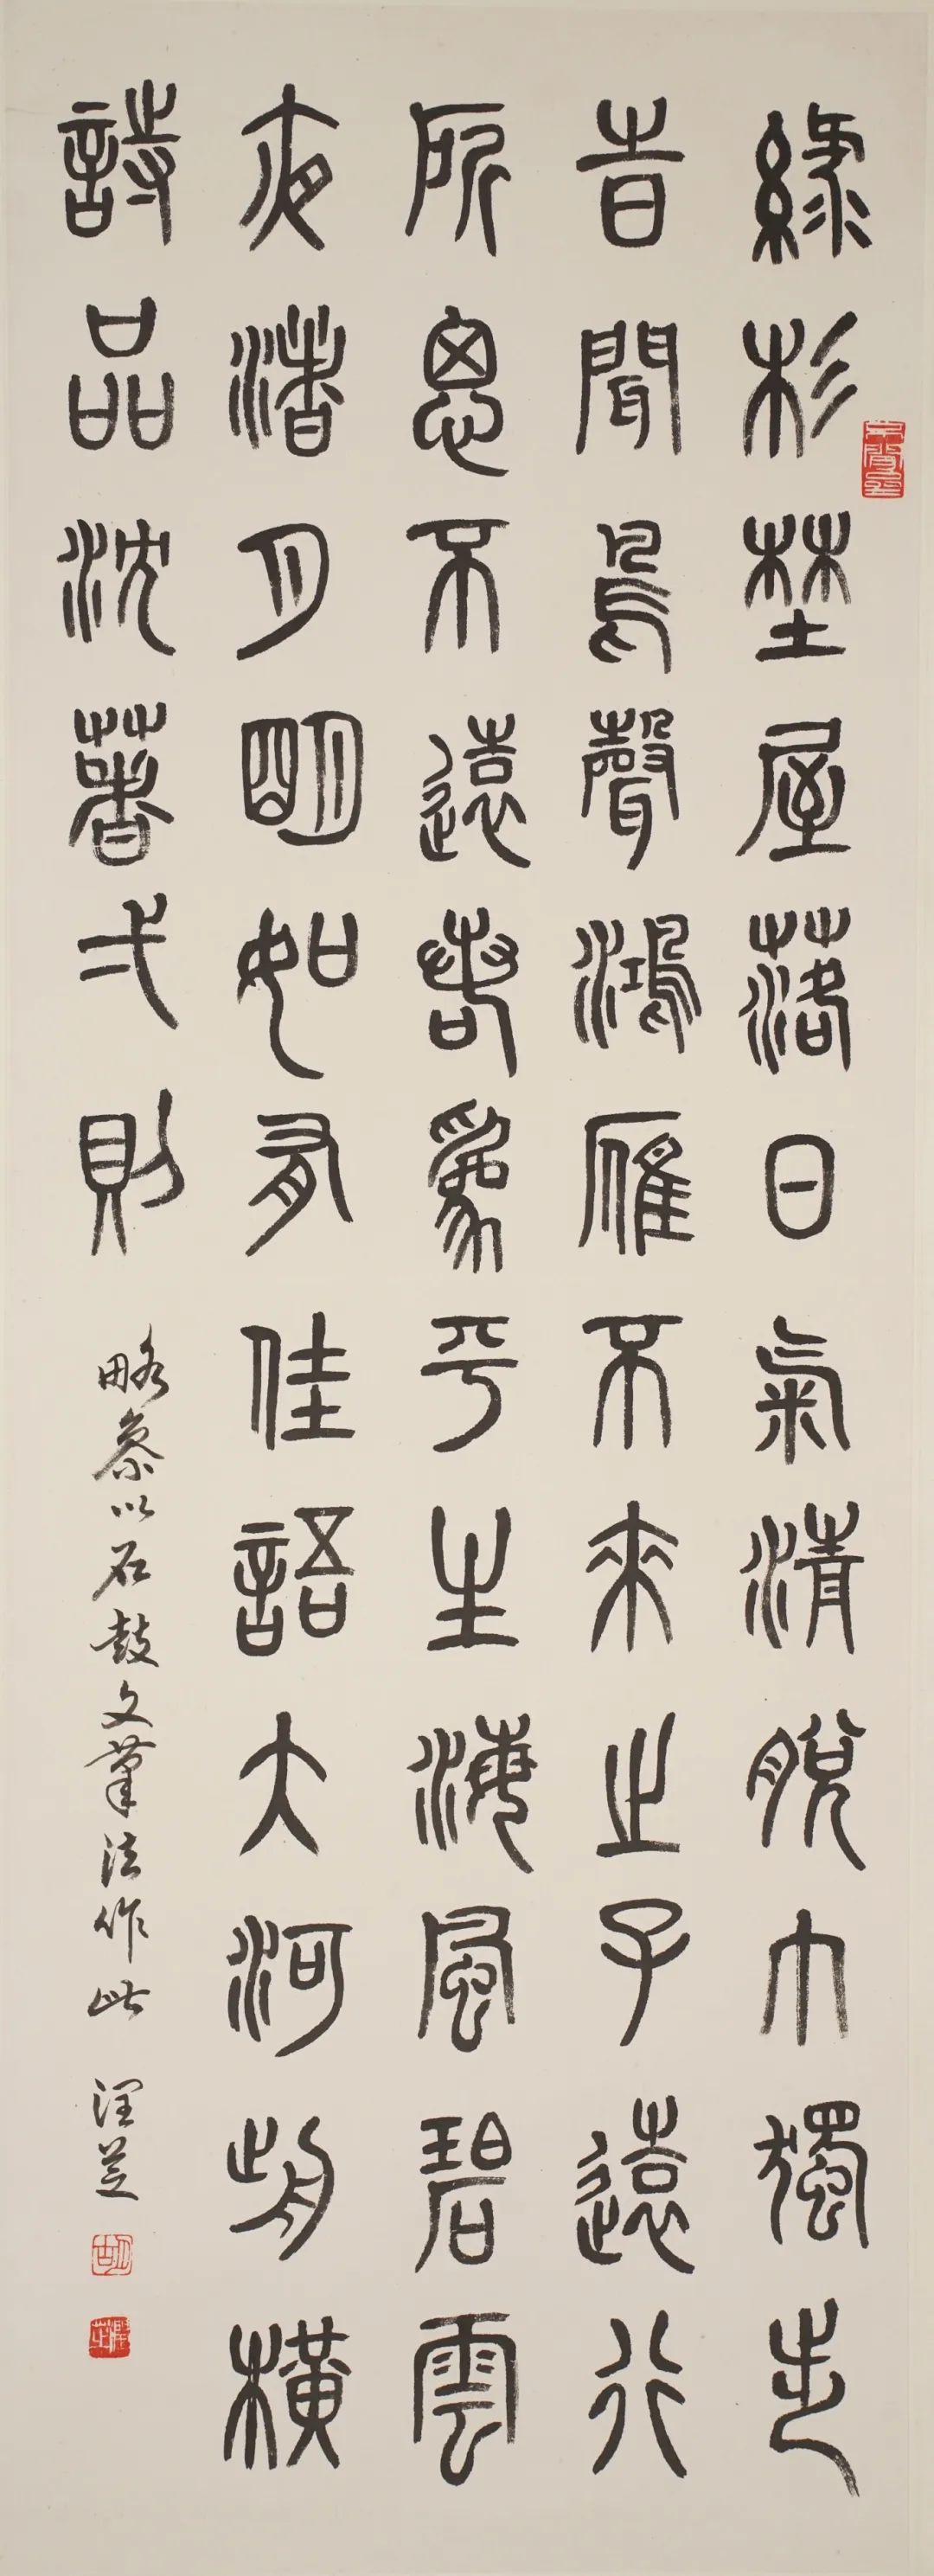 綠杉埜屋落日氣清脫巾獨步
旹聞鳥聲鴻雁不來之子遠行
所思不遠若為平生海風碧雲
夜渚月明如有佳語大河前橫
詩品沈著弌則
略參以石鼓文筆法作此 潤芝